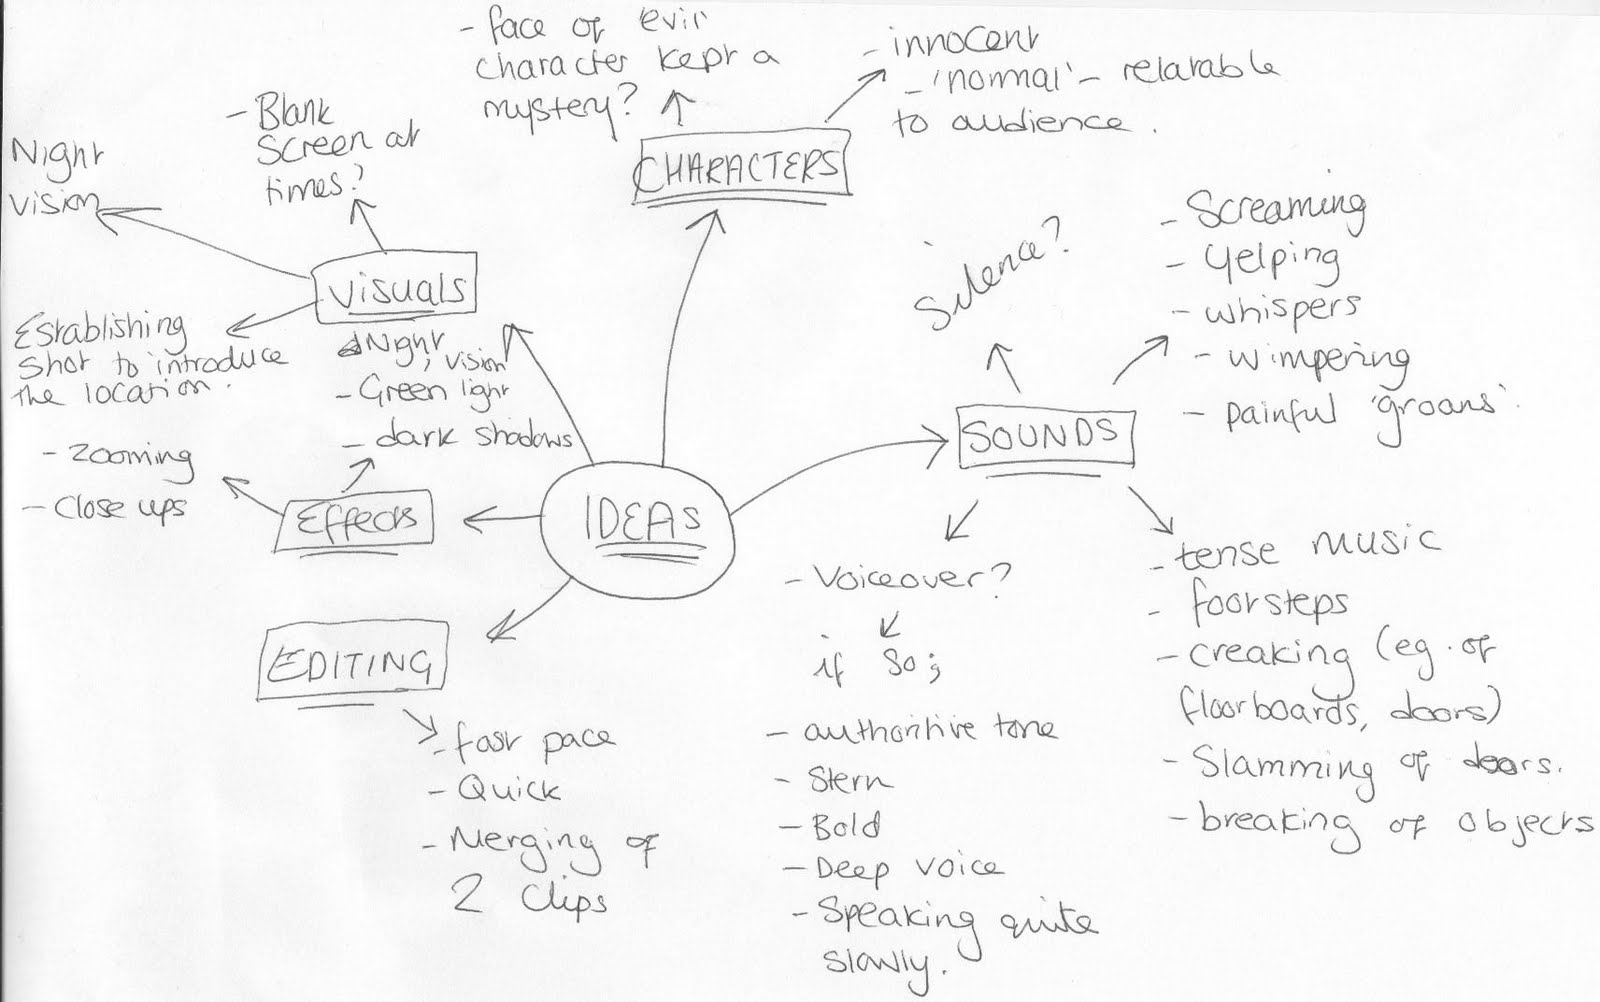 - face of evil
character kept a
mystery?
- innocent
- 'normal' - relatable
to audience.
CHARACTERS
- Blank
Screen at
times?
Night
vision
Visuals
Establishing
shot to introduce
the location.
Night
vision
- Green light
- dark shadows
- Zooming
- Close ups
Effects
IDEAS
Silence?
- Screaming
- Yelping
- whispers
- wimpering
- painful 'groans'.
SOUNDS
- Voiceover?
if so;
- authoritive tone
- Stern
- Bold
- Deep voice
- Speaking quite
slowly.
- tense music
- footsteps
- creaking (eg. of
floorboards, doors)
- Slamming of doors.
- breaking of objects
EDITING
- fast pace
- Quick
- Merging of
2 Clips